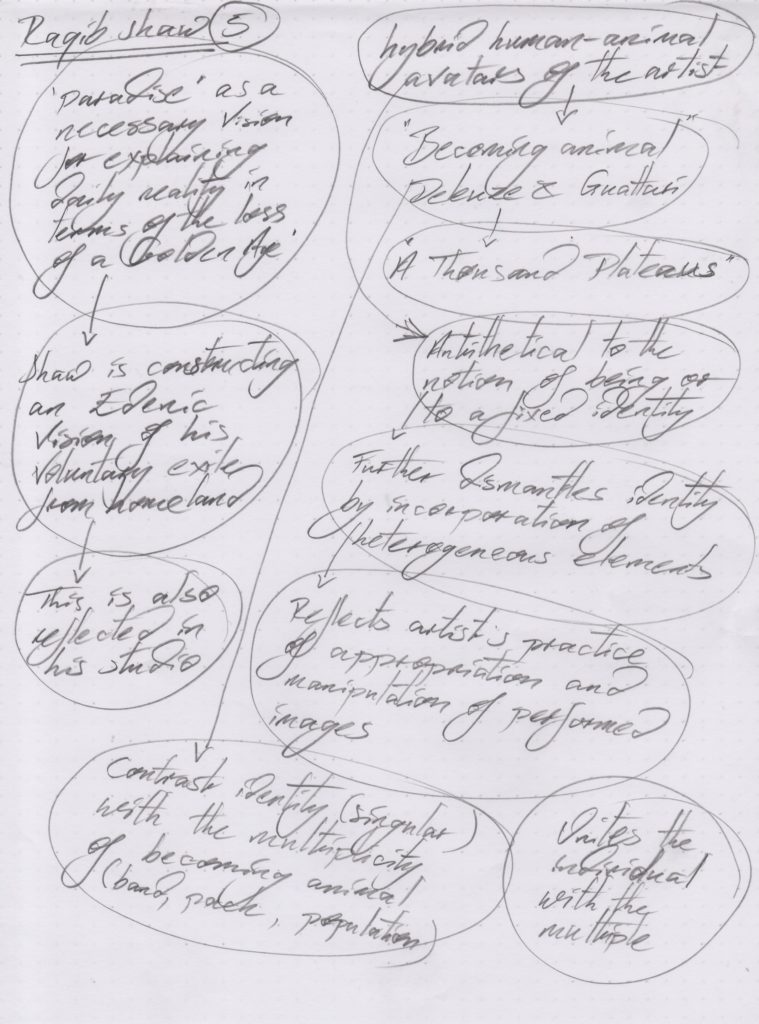 Raqib Shaw 5
'Paradise' as a
necessary vision
for explaining
daily reality in
terms of the loss
of a 'Golden Age'
Shaw is constructing
an Edenic
vision of his
voluntary exile
from homeland
This is also
reflected in
his studio
hybrid human-animal
avatars of the artist
"Becoming animal"
Deleuze & Guattari
"A Thousand Plateaus"
Antithetical to the
notion of being or
to a fixed identity
Further dismantles identity
by incorporation of
heterogeneous elements
Reflects artist's practice
of appropriation and
manipulation of performed
images
Contrast identity (singular)
with the multiplicity
of becoming animal
(band, pack, population)
Unites the
individual
with the
multiple